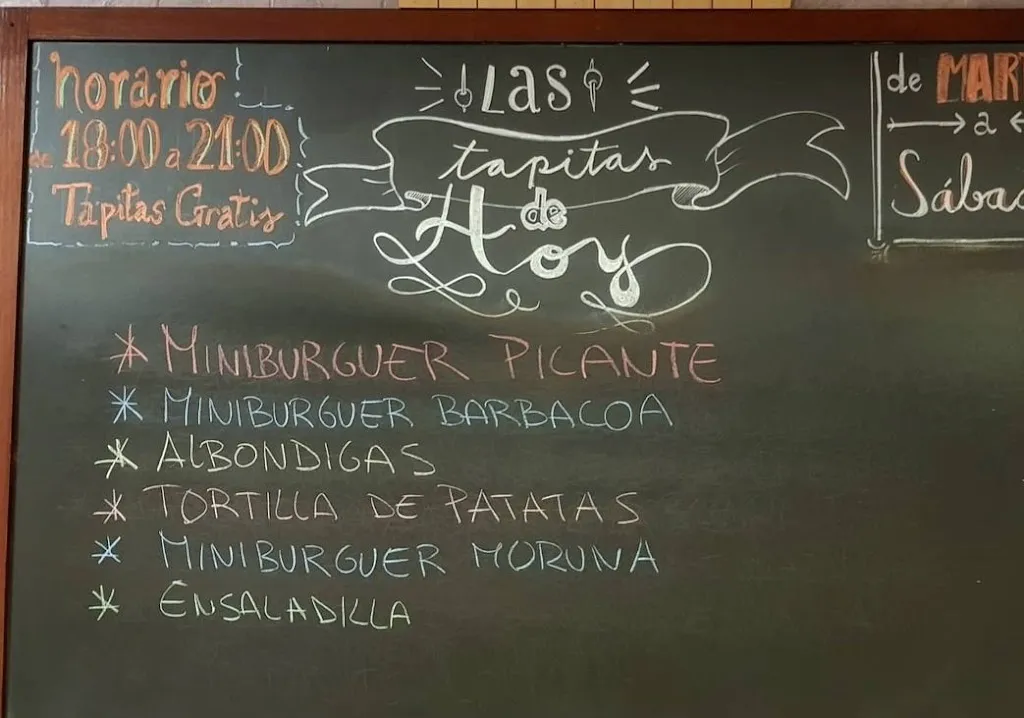 horario
de 18:00 a 21:00
Tapitas Gratis
Las
tapitas
de
Hoy
de MAR
a
Sábad
* MINIBURGUER PICANTE
* MINIBURGUER BARBACOA
* ALBONDIGAS
* TORTILLA DE PATATAS
* MINIBURGUER MORUNA
* ENSALADILLA